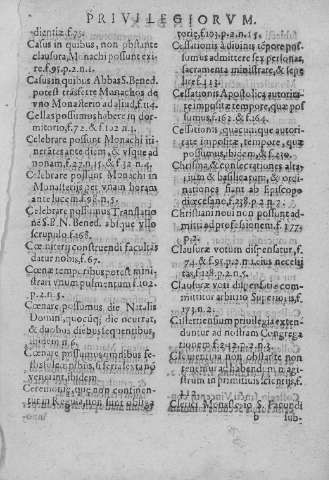 PRIVILEGIORVM.
dientiæ f.73.
Casus in quibus, non obstante
clausura, Monachi possunt exi
re, f.95.p.2.n.1.
Casus in quibus Abbas S. Bened.
potest trāsferre Monachos de
vno Monasterio ad aliud, f.114.
Cellas possumus habere in dor-
mitorio, f.72. & f.102 n.1.
Celebrare possunt Monachi iti-
nerātes ante diem &, vsque ad
nonam, f.27.n.15. & f.32 n.4.
Celebrare possunt Monachi in
Monasterijs per vnam horam
ante lucem. f.98.n.5.
Celebrare possumus Translatio
nē S.P.N. Bened. absque vllo
scrupulo f.268.
Cœmiterij construendi facultas
datur nobis, f.67.
Cœnæ temporibus potest mini-
strari vnum pulmentum f.102.
p.2.n.5.
Cœnare possumus die Natalis
Domini, quocūq; die occurrat,
& duobus diebus sequentibus,
ibidem n.6.
Cœnare possumus omnibus fe-
stis solemnibus, si feria sexta nō
venerint, ibidem.
Ceremoniæ, quæ non continen-
tur in Regula, non sunt obliga
torie, f.103.p.2.n.15.
Cessationis à diuinis tēpore pos-
sumus admittere sex personas,
sacramenta ministrare, & sepe
lire f.133.
Cessationis Apostolica autorita-
te impositæ tempore, quæ pos
sumus, f.162. & f.164.
Cessationis, quacunque autori-
tate impositæ, tempore, quæ
possumus, ibidem, & f.210.
Chrisma, & consecrationes altar-
ium & basilicarum, & ordi-
nationes fiant ab Episcopo
diœcesano, f.238.p.2.n.2.
Christiani noui non possunt ad-
mitti ad professionem. f.177.
p.2.
Clausuræ votum dispensatur, f.
74. & f.95.p.2.n.1. eius necessi
tas, f.128.p.2.n.5.
Clausuræ vosi dispensatio com-
mittitur arbitrio Superioris, f.
173.n.2.
Cisterciensium priuilegia exten-
duntur ad nostram Congrega
tionem f.242.p.2.n.3.
Clementina non obstante non
tenemur ad habendum magi
strum in primitiuis scientijs, f.
112.
Clerici Monasterio S. Facundi
b
sub-